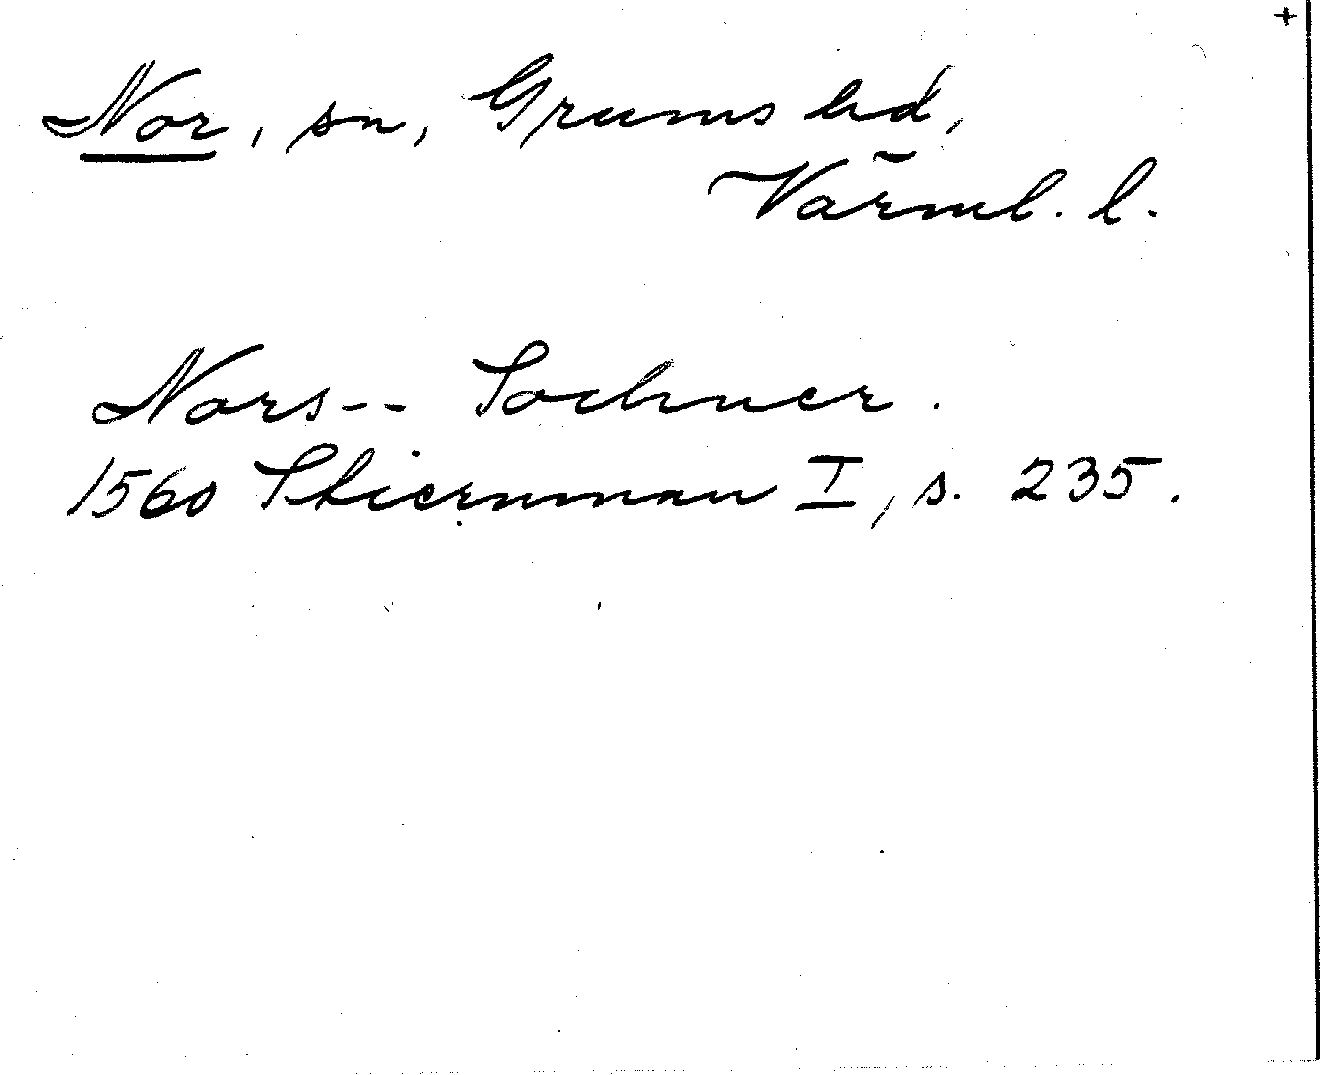 +
Nor, sn, Grums hd,
Värml. l.
Nors-- Sochner.
1560 Stiernman I, s. 235.